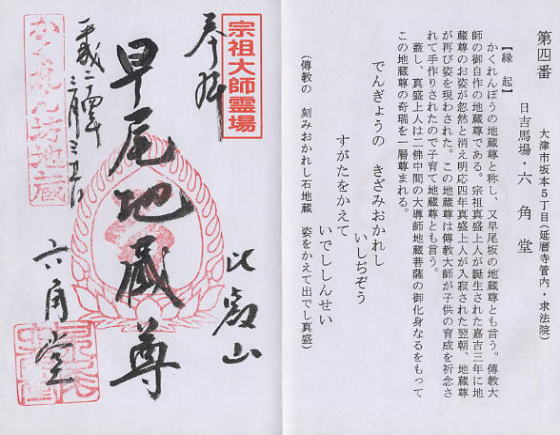 第四番
大津市坂本5丁目(延暦寺管内・求法院)
日吉馬場・六角堂
【縁起】
かくれんぼうの地蔵尊と称し、又早尾坂の地蔵尊とも言う。傳教大
師の御自作の地蔵尊である。宗祖真盛上人が誕生された嘉吉三年に地
蔵尊のお姿が忽然と消え明応四年真盛上人が入寂された翌朝、地蔵尊
が再び姿を現わされた。この地蔵尊は傳教大師が子供の育成を祈念さ
れて手作りされたので子育て地蔵尊とも言う。
蓋し、真盛上人は二佛中間の大導師地蔵菩薩の御化身なるをもって
この地蔵尊の奇瑞を一層尊まれる。
でんぎょうの きざみおかれし
いしぢぞう
すがたをかえて
いでししんせい
(傳教の 刻みおかれし石地蔵 姿をかえて出でし真盛)
宗祖大師霊場
奉拝
比叡山
早尾地蔵尊
六角堂
かくれん坊地蔵